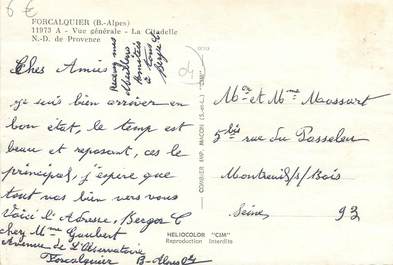 6€
FORCALQUIER (B.-Alpes)
11973 A - Vue générale - La Citadelle
N.-D. de Provence
Recevez mes
Meilleures
Amitiés
à tous
Berge
04
Chers Amis
je suis bien arriver en
bon état, le temp est
beau et reposant, ces le
principal, j'espère que
tout vas bien vers vous
Voici l'Adresse, Berger C
chez Mme Gaubert
Avenue de l'Observatoire
Forcalquier B-Alpes
COMBIER IMP. MACON (S.-et-L.) "CIM"
HELIOCOLOR "CIM"
Reproduction Interdite
Mr et Mme Moussart
5bis rue du Passeleu
Montreuil/s/Bois
Seine 93